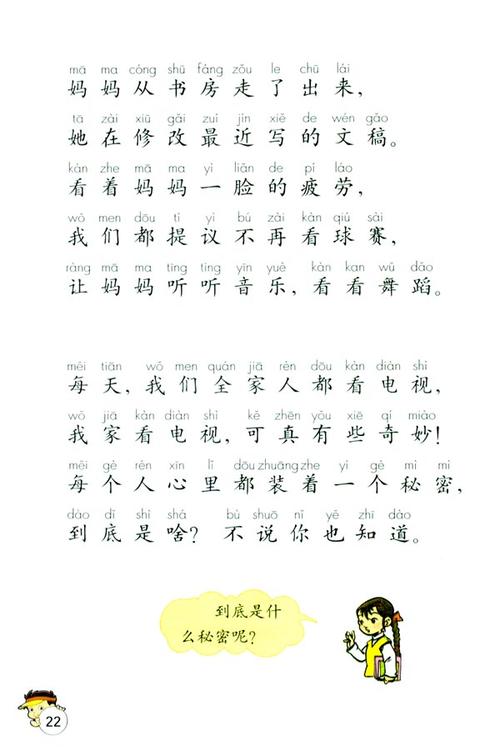 mā ma cóng shū fáng zǒu le chū lái
妈妈从书房走了出来，
tā zài xiū gǎi zuì jìn xiě de wén gǎo
她在修改最近写的文稿。
kàn zhe mā ma yì liǎn de pí láo
看着妈妈一脸的疲劳，
wǒ men dōu tí yì bú zài kàn qiú sài
我们都提议不再看球赛，
ràng mā ma tīng tīng yīn yuè kàn kan wǔ dǎo
让妈妈听听音乐，看看舞蹈。
měi tiān wǒ men quán jiā rén dōu kàn diàn shì
每天，我们全家人都看电视，
wǒ jiā kàn diàn shì kě zhēn yǒu xiē qí miào
我家看电视，可真有些奇妙！
měi gè rén xīn lǐ dōu zhuāng zhe yí gè mì mì
每个人心里都装着一个秘密，
dào dǐ shì shá bù shuō nǐ yě zhī dào
到底是啥？不说你也知道。
到底是什
么秘密呢？
22